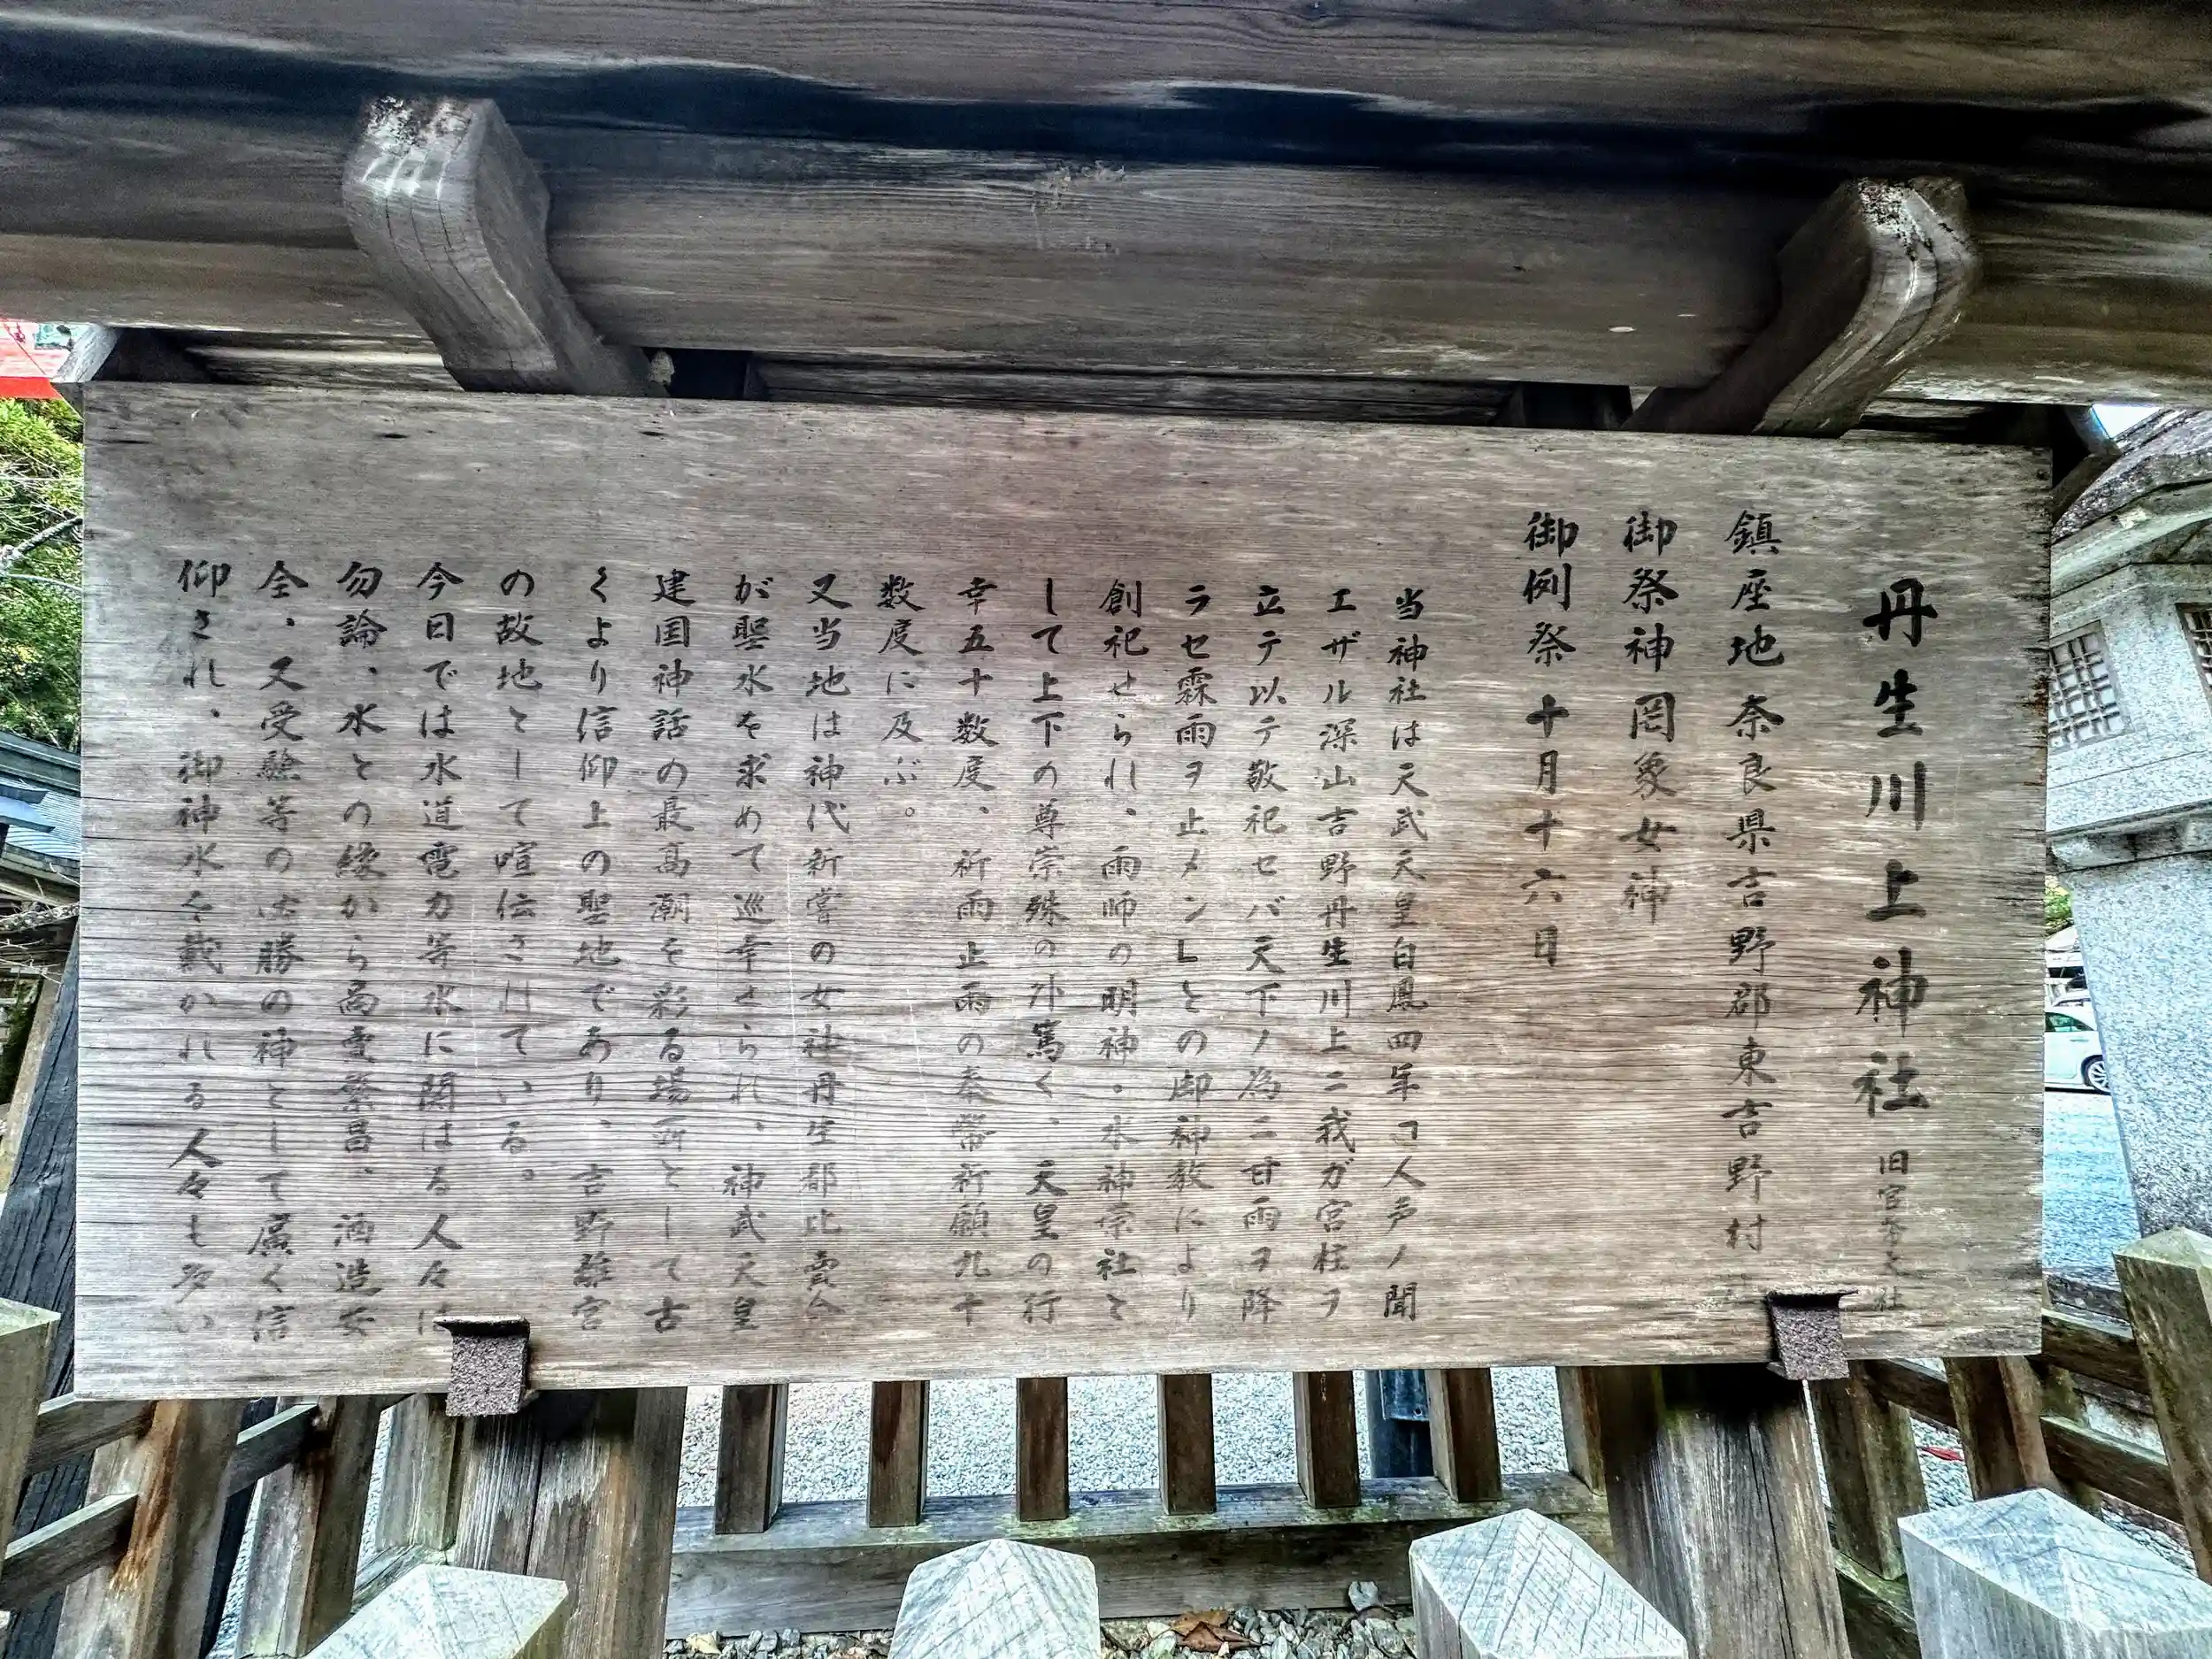 丹生川上神社 旧官幣大社
鎮座地 奈良県吉野郡東吉野村
御祭神 罔象女神
御例祭 十月十六日
当神社は天武天皇白鳳四年「人声ノ聞
エザル深山吉野丹生川上ニ我ガ宮柱ヲ
立テ以テ敬祀セバ天下ノ為ニ甘雨ヲ降
ラセ霖雨ヲ止メン」との御神教により
創祀せられ、雨師の明神・水神宗社と
して上下の尊崇殊の外篤く、天皇の行
幸五十数度、祈雨止雨の奉幣祈願九十
数度に及ぶ。
又当地は神代新嘗の女神丹生都比賣命
が聖水を求めて巡幸せられ、神武天皇
建国神話の最高潮を彩る場所として古
くより信仰上の聖地であり、吉野離宮
の故地として喧伝されている。
今日では水道電力等水に関はる人々は
勿論、水との縁から商賣繁昌、酒造安
全、又受験等の必勝の神として廣く信
仰され、御神水を戴かれる人々も多い